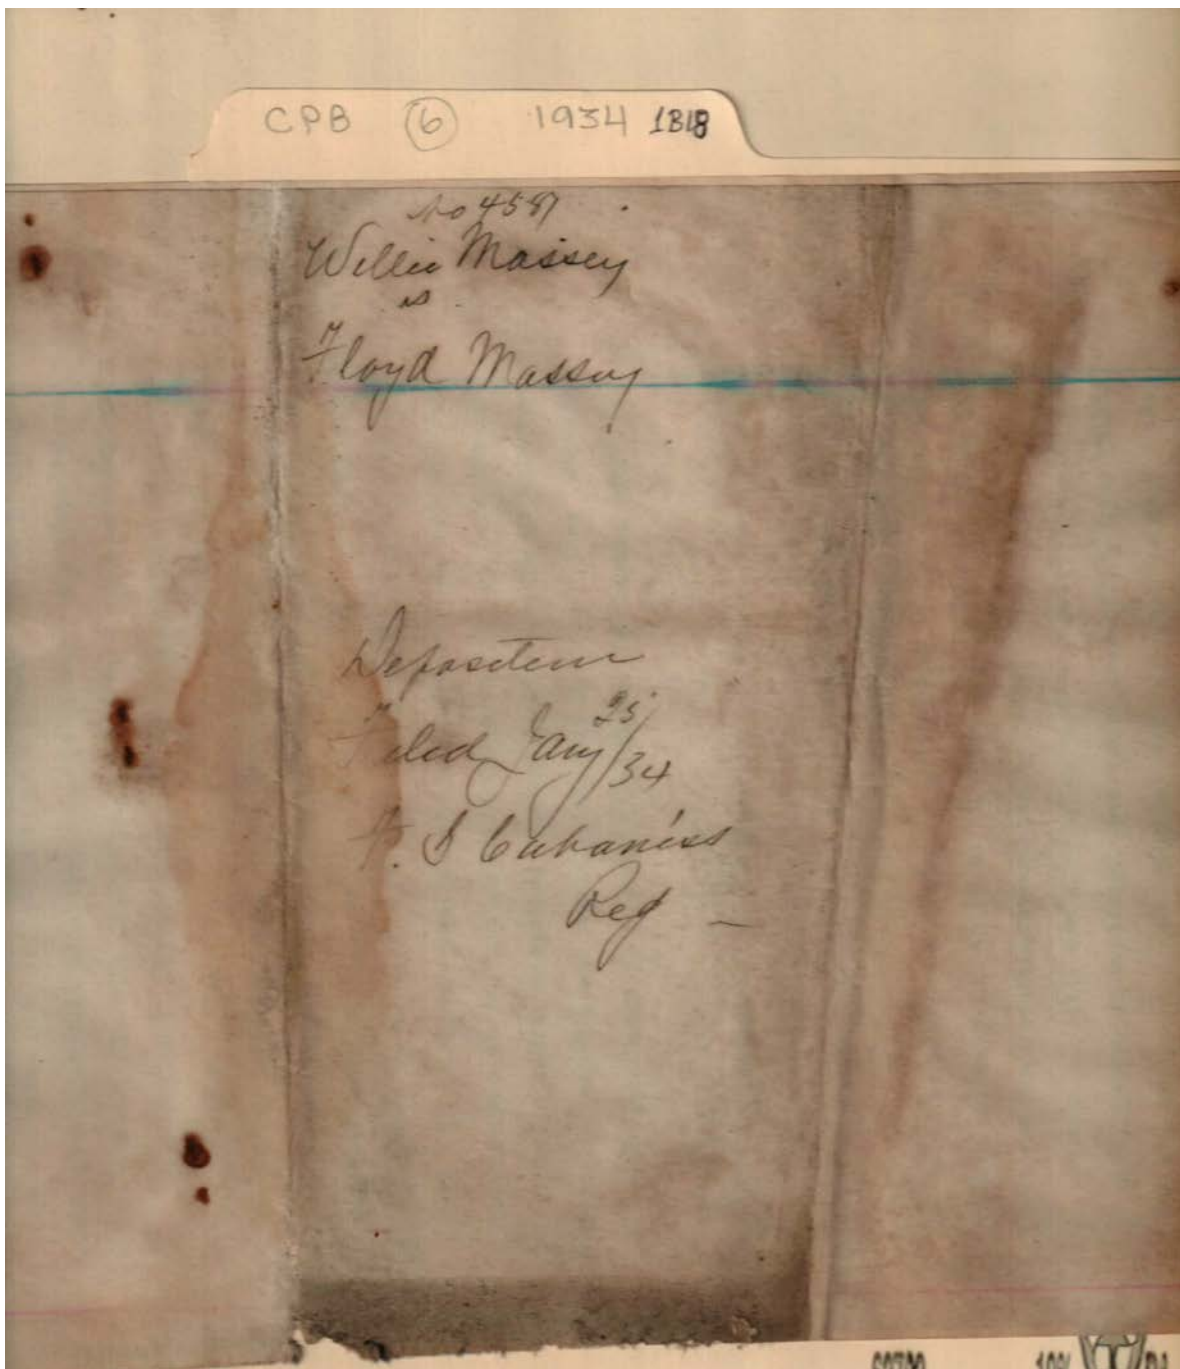 CPB 6 1934 1B18
No 4587
Willie Massey
vs
Floyd Massey
Deposition
Filed Jany 25/34
F. S Cabaniss
Reg